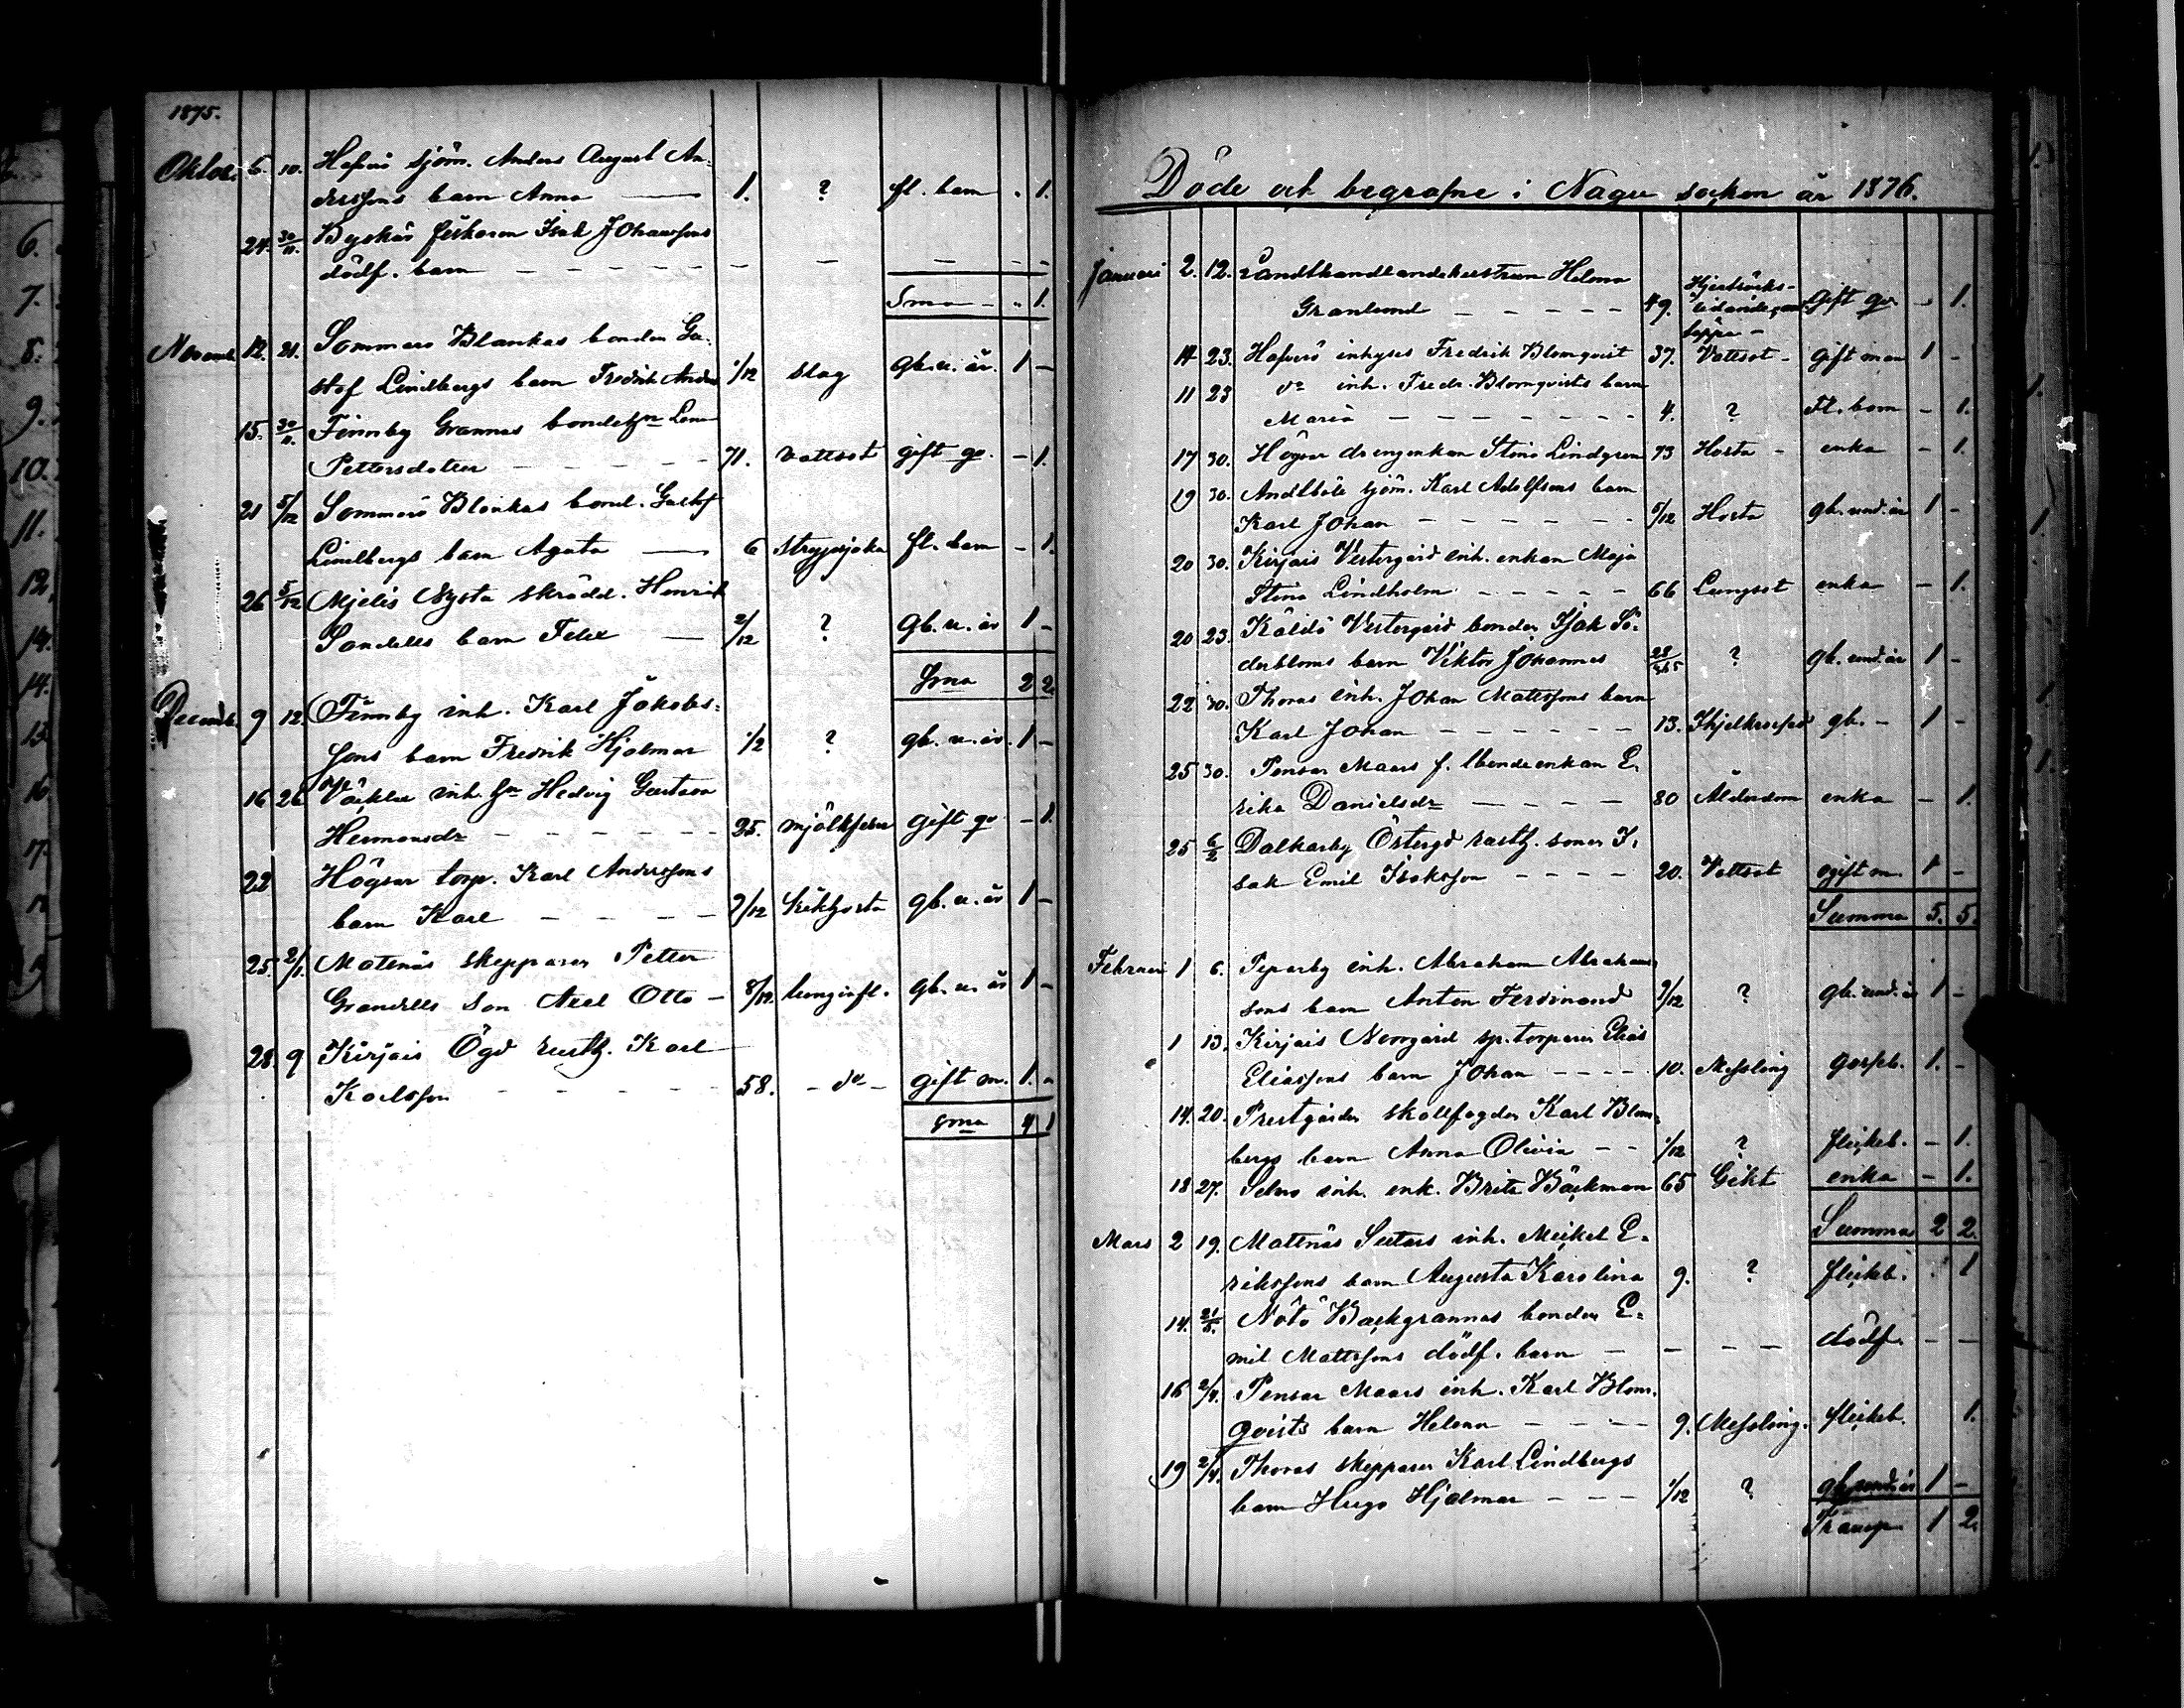 1875.
Oktob. 6. 10. Hafverö sjöm. Anders August An-
derssons barn Anna 1. ? fl. barn . 1.
24. 30/11. Byskär fiskaren Isak Johanssons
dödf. barn
Sma - . 1.
Novemb. 12. 21. Sommarö Blankas bonden Gu-
staf Lindbergs barn Fredrik Anders 1/12 slag gb. u. år. 1 -
15. 30/11. Finnby Grannas bondehn Lena
Pettersdotter 71. vattsot gift qv. - 1.
21 5/12 Sommarö Blankas bond. Gustaf
Lindbergs barn Agata 6 strypsjuka fl. barn - 1.
26 5/12 Mjelis Nysta skrädd. Henrik
Sandells barn Felix 2/12 ? Gb. u. år 1 -
Sma 2 2.
Decemb. 9 12. Finnby inh. Karl Jakobs-
sons barn Fredrik Hjalmar 1/2 ? gb. u. år. 1 -
16 26 inh. hu Hedvig Gustava
Hermansdr 25. mjölkfeber gift qv - 1.
22 Högsar torp. Karl Anderssons
barn Karl 7/12 kikhosta gb. u. år 1 -
25. 2/1. Matnäs skepparen Petter
Grandells son Axel Otto - 8/12. lunginfl. gb. u. år 1 -
28. 9 Kirjais Ögd rusth. Karl
Karlsson 58. - do - gift m. 1. -
Sma 4 1
Döde och begrafne i Nagu socken år 1876.
Januari 2. 12. Landthandlandehustrun Helena
Granlund 49. Hjertsäcks-
gift qv - 1.
14 23. Hafverö inhyses Fredrik Blomqvist 37. Vattsot - gift man 1 -
11 23 do inh. Fredr. Blomqvists barn
Maria 4. ? Fl. barn - 1.
17 30. Högsar drengenkan Stina Lindgren 73 Hosta - enka - 1.
19 30. Andtböle sjöm. Karl Adolfssons barn
Karl Johan 5/12 Hosta gb. und. år 1 -
20 30. Kirjais Vestergård inh. enkan Maja
Stina Lindholm 66 Lungsot enka - 1.
20 23. Käldö Vestergård bonden Isak Sö-
derbloms barn Viktor Johannes 28/365 ? gb. und. år 1 -
22 30. Thoras inh. Johan Mattssons barn
Karl Johan 13. gb. - 1 -
25 30. Pensar Maars f. bondeenkan E-
rika Danielsdr 80 Ålderdom enka - 1.
25 6/2 Dalkarby Östergd rusth. sonen I-
sak Emil Isaksson 20. Vattsot ogift m. 1 -
Summa 5. 5.
Februari 1 6. Piparby inh. Abraham Abrahams-
sons barn Anton Ferdinand 9/12 ? gb. und. år 1 -
1 13. Kirjais Norrgård sp. torparen Elias
Eliassons barn Johan 10. Messling gosseb. 1. -
14. 20. Prestgården skallfogden Karl Blom-
bergs barn Anna Olivia 1/12 ? flickeb. - 1.
18 27. Selmo inh. enk. Brita Bäckman 65 Gikt enka - 1.
Summa 2 2.
Mars 2 19. Matnäs Sutars inh. Mickel E-
rikssons barn Augusta Karolina 9. ? flickeb. . 1
14. 21/5. Nötö Backgrannas bonden E-
mil Mattssons dödf. barn dödf. - -
16 2/4. Pensar Maars inh. Karl Blom-
qvists barn Helena 9. Messling. flickeb. 1.
19 2/4. Thoras skepparen Karl Lindbergs
barn Hugo Hjalmar 1/12 ? gb. und. år 1 -
Transp. 1 2.